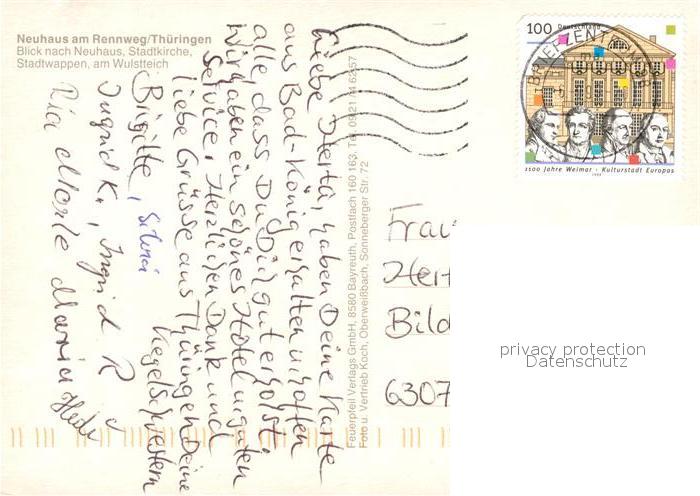 Neuhaus am Rennweg/Thüringen
Blick nach Neuhaus, Stadtkirche,
Stadtwappen, am Wulstteich
Liebe Herta, haben Deine Karte
aus Bad-König erhalten u. hoffen
alle dass Du Dich gut erholst.
Wir haben ein schönes Hotel u. guten
Service. Herzlichen Dank und
liebe Grüsse aus Thüringen Deine
Kegelschwestern
Birgitte, Silvia
Ingrid K., Ingrid R
Ria Maria
Feuerpfeil Verlags GmbH, 8580 Bayreuth, Postfach 160 163, Tel. 0921
Foto u. Vertrieb Koch, Oberweißbach, Sonneberger Str. 72
100 Deutschland
BRIEFZENTRUM
1100 Jahre Weimar · Kulturstadt Europas
1999
Frau
Her
Bild
6307
privacy protection
Datenschutz